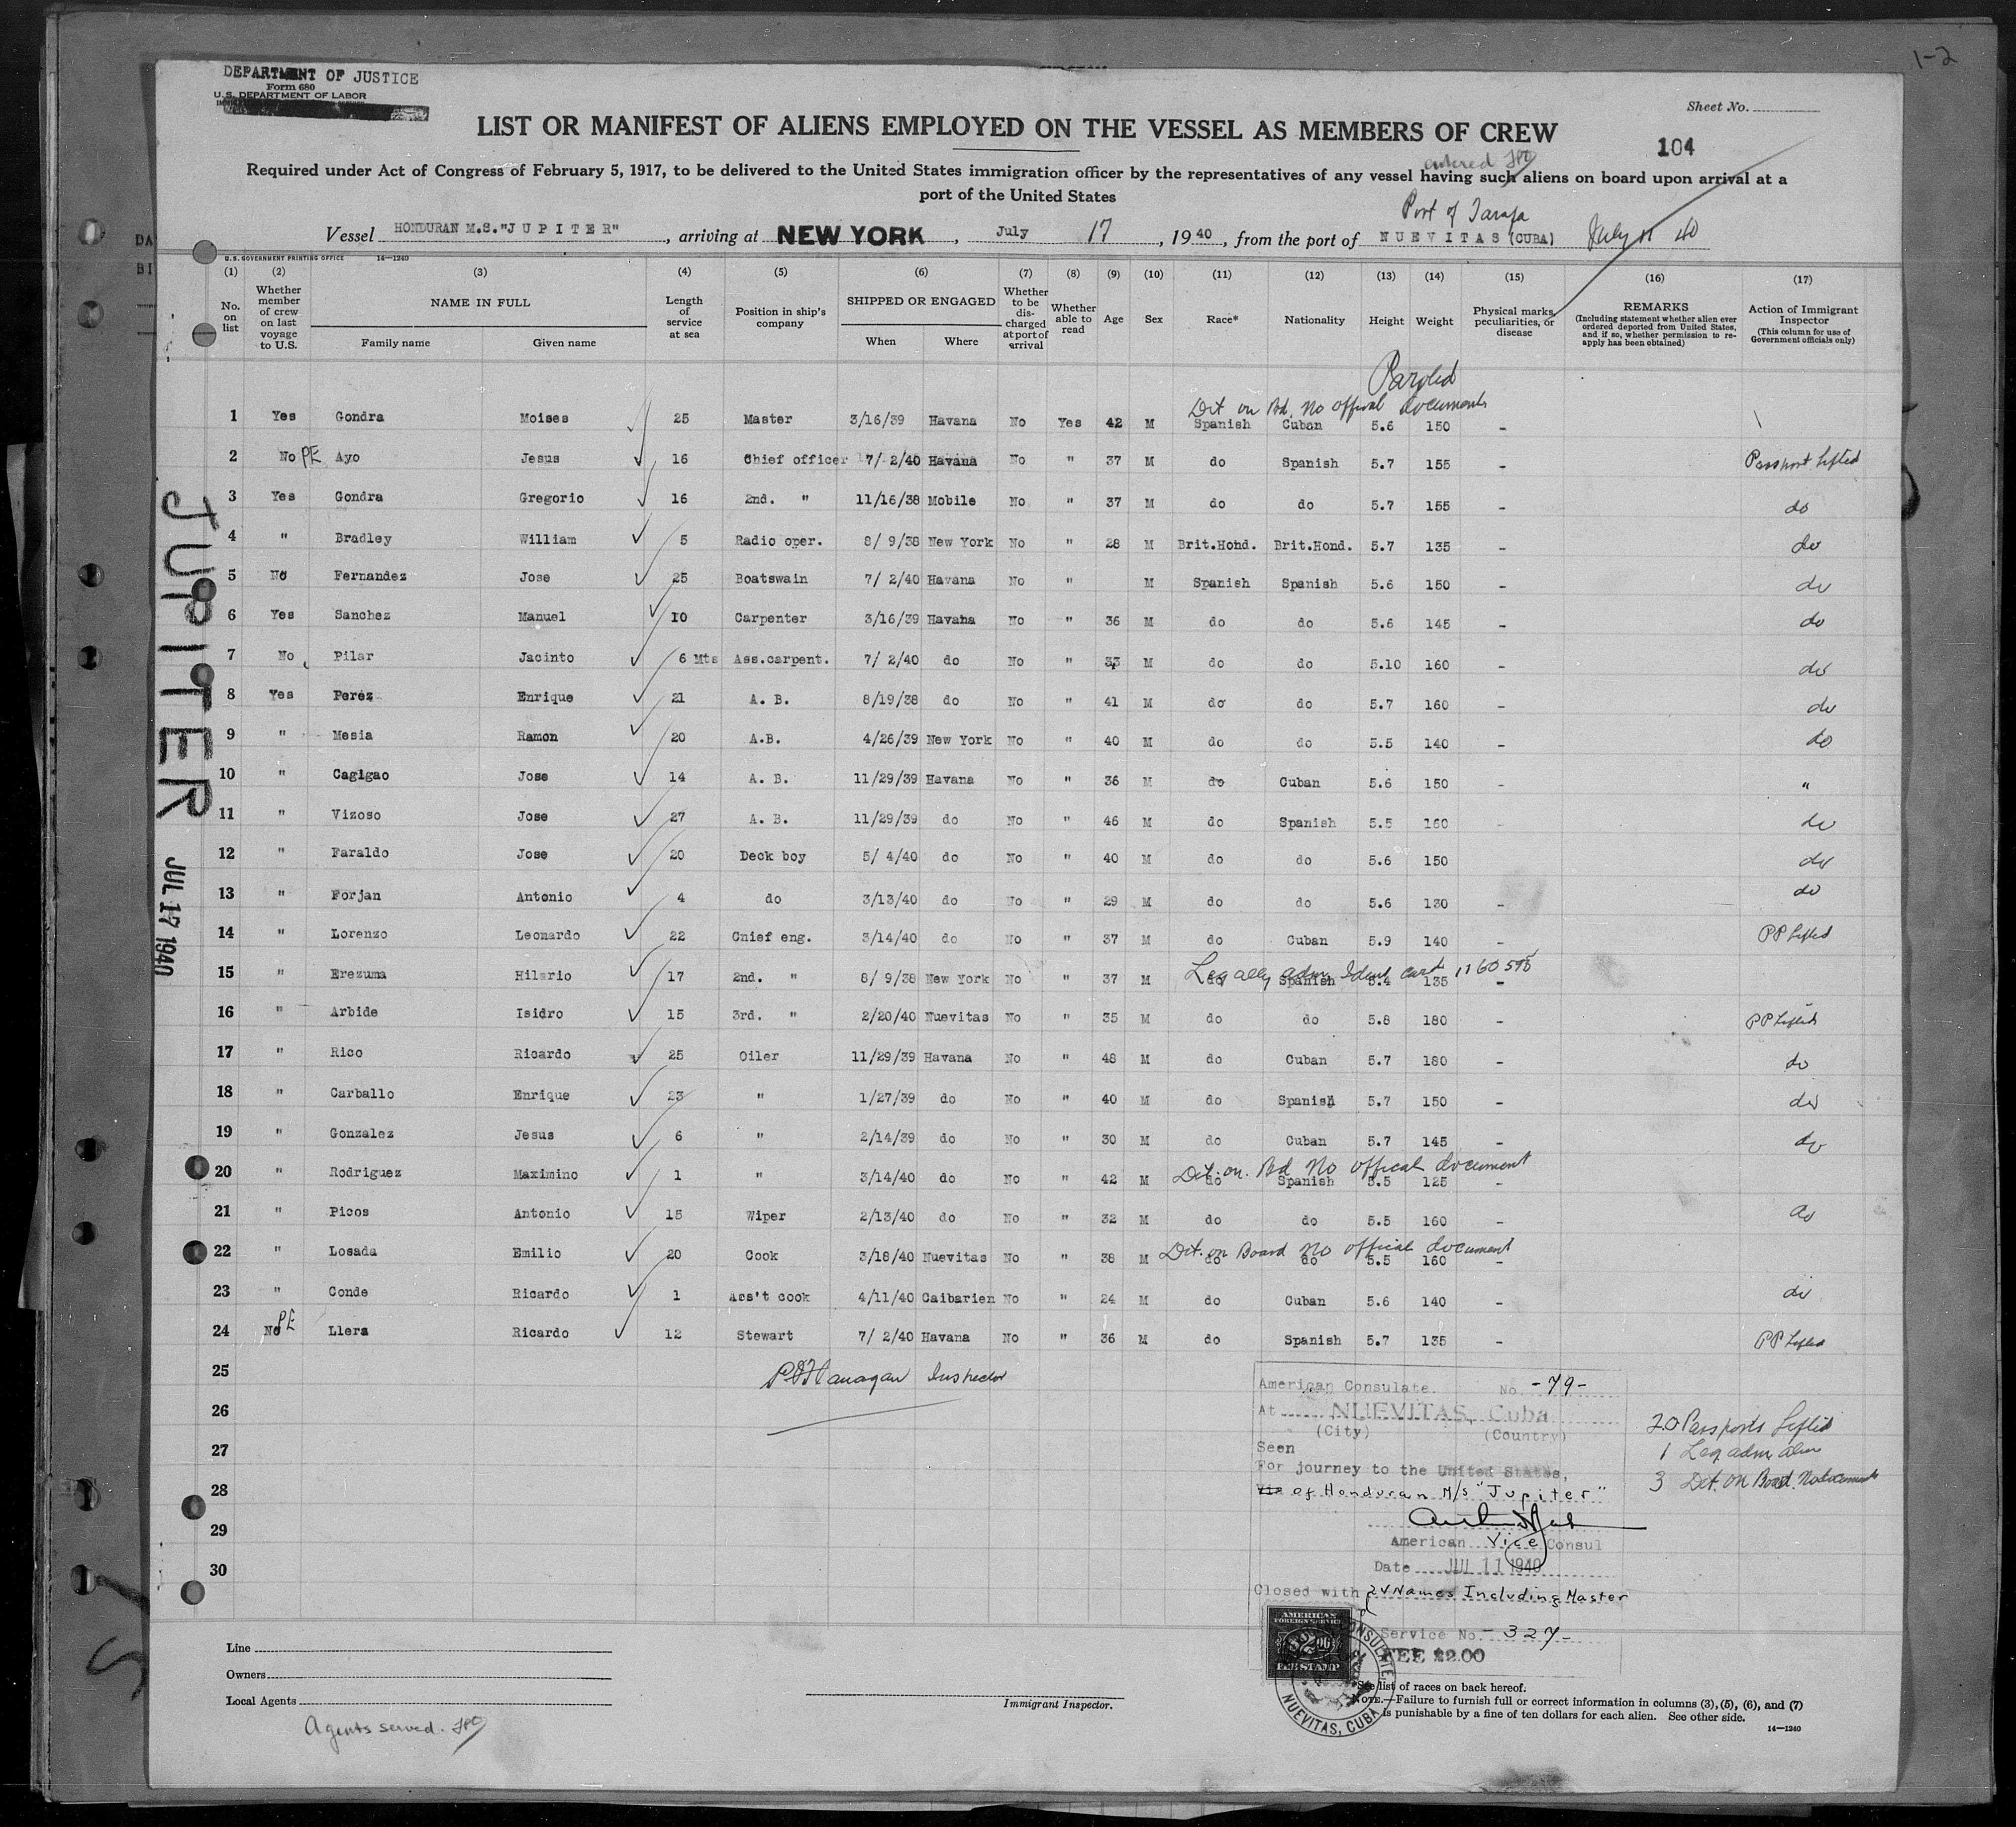 1-2
DEPARTMENT OF JUSTICE
Form 680
U. S. DEPARTMENT OF LABOR
Sheet No.
LIST OR MANIFEST OF ALIENS EMPLOYED ON THE VESSEL AS MEMBERS OF CREW
104
entered
Required under Act of Congress of February 5, 1917, to be delivered to the United States immigration officer by the representatives of any vessel having such aliens on board upon arrival at a
port of the United States
Port of Tarafa
Vessel HONDURAN M.S."J U P I T E R", arriving at NEW YORK, July 17, 1940, from the port of NUEVITAS (CUBA) July 11 40
U. S. GOVERNMENT PRINTING OFFICE 14—1240
(1) (2) (3) (4) (5) (6) (7) (8) (9) (10) (11) (12) (13) (14) (15) (16) (17)
No. on list
Whether member of crew on last voyage to U.S.
NAME IN FULL
Family name Given name
Length of service at sea
Position in ship's company
SHIPPED OR ENGAGED
When Where
Whether to be discharged at port of arrival
Whether able to read
Age
Sex
Race*
Nationality
Height
Weight
Physical marks, peculiarities, or disease
REMARKS
(Including statement whether alien ever ordered deported from United States, and if so, whether permission to reapply has been obtained)
Action of Immigrant Inspector
(This column for use of Government officials only)
Paroled
Det on Bd. No offical documents
1 Yes Gondra Moises 25 Master 3/16/39 Havana No Yes 42 M Spanish Cuban 5.6 150 -
2 No PE Ayo Jesus 16 Chief officer 7/ 2/40 Havana No " 37 M do Spanish 5.7 155 - Passport Lifted
3 Yes Gondra Gregorio 16 2nd. " 11/16/38 Mobile No " 37 M do do 5.7 155 - do
4 " Bradley William 5 Radio oper. 8/ 9/38 New York No " 28 M Brit.Hond. Brit.Hond. 5.7 135 - do
5 No Fernandez Jose 25 Boatswain 7/ 2/40 Havana No " M Spanish Spanish 5.6 150 - do
6 Yes Sanchez Manuel 10 Carpenter 3/16/39 Havana No " 36 M do do 5.6 145 - do
7 No Pilar Jacinto 6 Mts Ass.carpent. 7/ 2/40 do No " 33 M do do 5.10 160 - do
8 Yes Perez Enrique 21 A. B. 8/19/38 do No " 41 M do do 5.7 160 - do
9 " Mesia Ramon 20 A.B. 4/26/39 New York No " 40 M do do 5.5 140 - do
10 " Cagigao Jose 14 A. B. 11/29/39 Havana No " 36 M do Cuban 5.6 150 - "
11 " Vizoso Jose 27 A. B. 11/29/39 do No " 46 M do Spanish 5.5 160 - do
12 " Faraldo Jose 20 Deck boy 5/ 4/40 do No " 40 M do do 5.6 150 do
13 " Forjan Antonio 4 do 3/13/40 do No " 29 M do do 5.6 130 - do
14 " Lorenzo Leonardo 22 Cnief eng. 3/14/40 do No " 37 M do Cuban 5.9 140 - PP Lifted
Legally adm. Ident card 1160595
15 " Erezuma Hilario 17 2nd. " 8/ 9/38 New York No " 37 M do Spanish 5.4 135 -
16 " Arbide Isidro 15 3rd. " 2/20/40 Nuevitas No " 35 M do do 5.8 180 - PP Lifted
17 " Rico Ricardo 25 Oiler 11/29/39 Havana No " 48 M do Cuban 5.7 180 - do
18 " Carballo Enrique 23 " 1/27/39 do No " 40 M do Spanish 5.7 150 - do
19 " Gonzalez Jesus 6 " 2/14/39 do No " 30 M do Cuban 5.7 145 - do
Det. on. Bd No offical document
20 " Rodriguez Maximino 1 " 3/14/40 do No " 42 M do Spanish 5.5 125 -
21 " Picos Antonio 15 Wiper 2/13/40 do No " 32 M do do 5.5 160 - do
Det. on Board No offical document
22 " Losada Emilio 20 Cook 3/18/40 Nuevitas No " 38 M do do 5.5 160 -
23 " Conde Ricardo 1 Ass't cook 4/11/40 Caibarien No " 24 M do Cuban 5.6 140 - do
24 No PE Llera Ricardo 12 Stewart 7/ 2/40 Havana No " 36 M do Spanish 5.7 135 - PP Lifted
25
26
27
28
29
30
Inspector
JUPITER
JUL 17 1940
American Consulate. No. -79-
At NUEVITAS, Cuba
(City) (Country)
Seen
For journey to the United States,
Via of Honduran M/S "Jupiter"
American Vice Consul
Date JUL 11 1940
Closed with 24 Names Including Master
Service No. - 327 -
FEE $2.00
AMERICAN
FOREIGN SERVICE
FEE STAMP
NUEVITAS, CUBA
20 Passports Lifted
1 Leg adm alien
3 Det. on Board. No documents
Line
Owners
Local Agents
Agents served.
Immigrant Inspector.
*See list of races on back hereof.
NOTE.—Failure to furnish full or correct information in columns (3), (5), (6), and (7)
is punishable by a fine of ten dollars for each alien. See other side.
14—1240